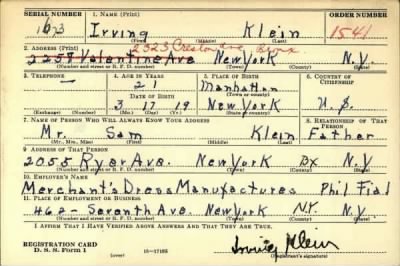 SERIAL NUMBER 1. NAME (Print) ORDER NUMBER
163 Irving Klein 1541
(First) (Middle) (Last)
2323 Creston Ave Bronx
2. ADDRESS (Print)
2257 Valentine Ave New York N.Y.
(Number and street or R. F. D. number) (Town) (County) (State)
3. TELEPHONE 4. AGE IN YEARS 5. PLACE OF BIRTH 6. COUNTRY OF CITIZENSHIP
— 21 Manhattan
DATE OF BIRTH (Town or county)
3 17 19 New York U.S.
(Exchange) (Number) (Mo.) (Day) (Yr.) (State or country)
7. NAME OF PERSON WHO WILL ALWAYS KNOW YOUR ADDRESS 8. RELATIONSHIP OF THAT PERSON
Mr. Sam Klein Father
(Mr., Mrs., Miss) (First) (Middle) (Last)
9. ADDRESS OF THAT PERSON
2055 Ryer Ave. New York Bx N.Y
(Number and street or R. F. D. number) (Town) (County) (State)
10. EMPLOYER'S NAME
Merchant's Dress Manufactures Phil Fial
11. PLACE OF EMPLOYMENT OR BUSINESS
462 - Seventh Ave. New York N.Y. N.Y
(Number and street or R. F. D. number) (Town) (County) (State)
I AFFIRM THAT I HAVE VERIFIED ABOVE ANSWERS AND THAT THEY ARE TRUE.
REGISTRATION CARD
D. S. S. Form 1 (over) 16—17105 Irving Klein
(Registrant's signature)